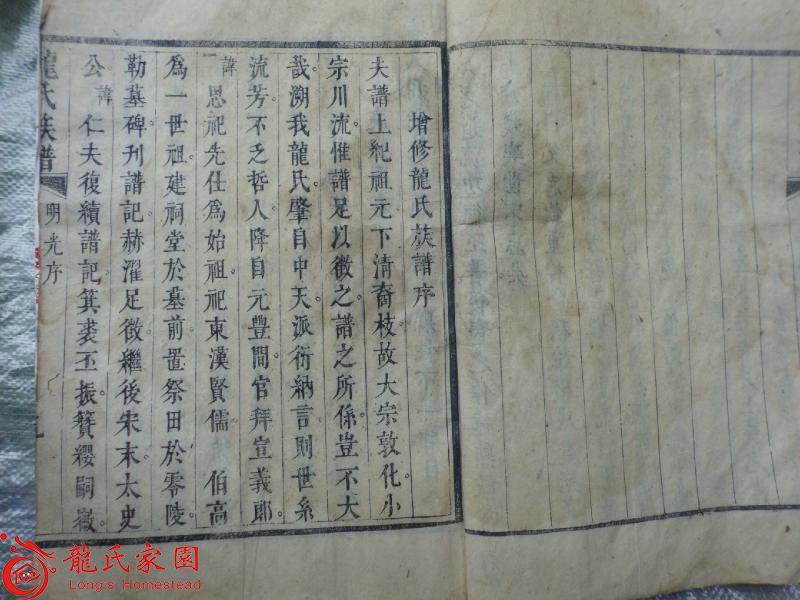 增修龍氏族譜序
夫譜上紀祖元下清裔枝故大宗敦化小
宗川流惟譜足以徵之譜之所係豈不大
哉溯我龍氏肇自中天派衍納言則世系
流芳不乏哲人降自元豐間官拜宣義郎
諱思祀先仕為始祖祀東漢賢儒 伯高
爲一世祖建祠堂於墓前置祭田於零陵
勒墓碑刊譜記赫濯足徵繼後宋末太史
公諱仁夫復續譜記箕裘丕振簪纓嗣徽
龍氏族譜
明光序
龍氏家園
Long's Homestead